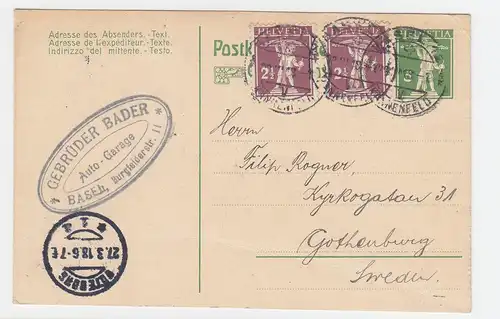 Adresse des Absenders. - Text.
Adresse de l'expéditeur. - Texte.
Indirizzo del mittente. - Testo.
Postk
HELVETIA
2½
HELVETIA
2½
HELVETIA
5
GEBRÜDER BADER
Auto-Garage
BASEL, Burgfelderstr. 11
Herrn
Filip Rogner,
Kyrkogatan 31
Gothenburg
Sweden.
GÖTEBORG
27.3.18.6-7 E
* 1 *